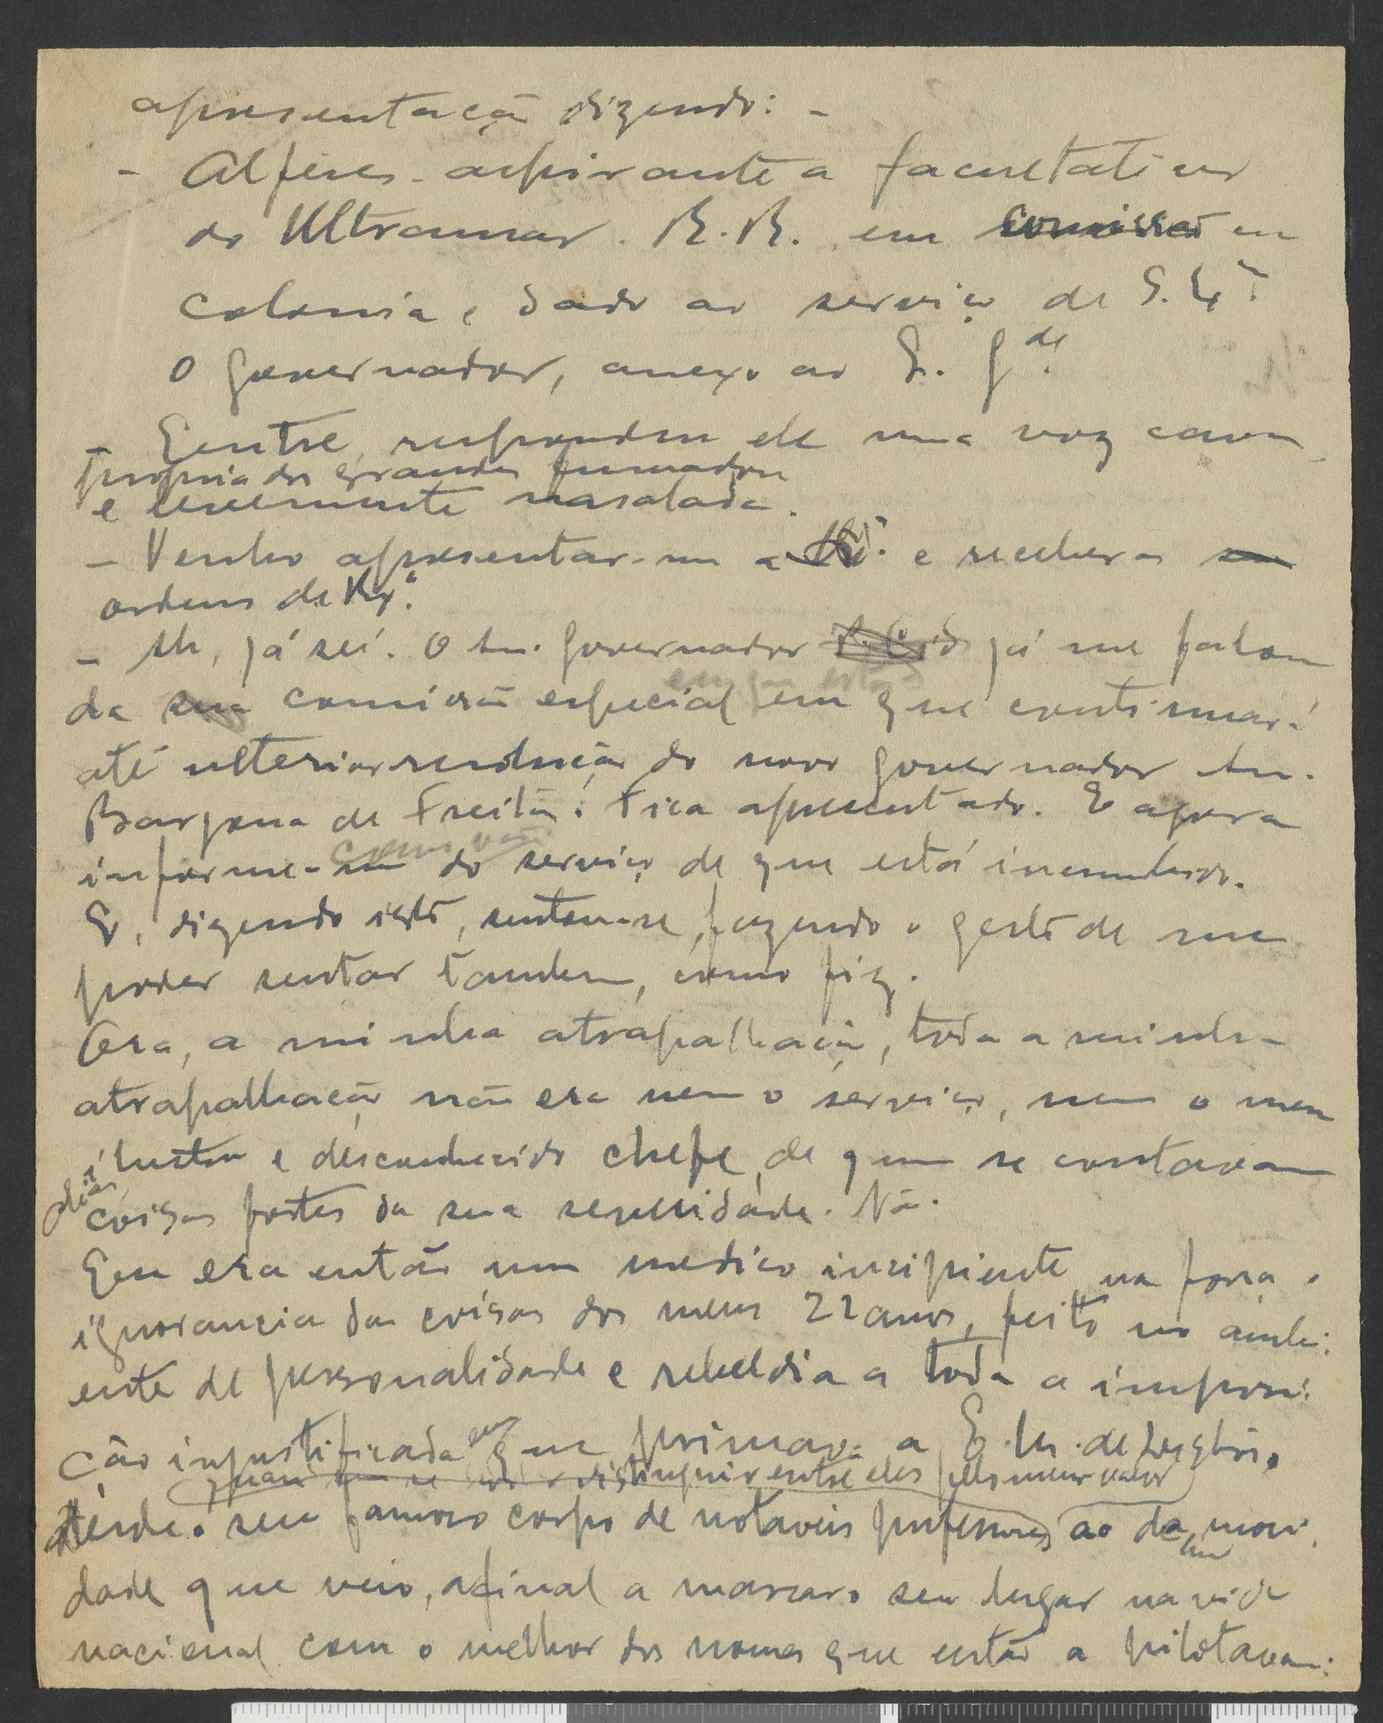 apresentação dizendo: -
- Alferes-aspirante a facultativo
do Ultramar. B.B. em comissão na
colonia e dado ao serviço de S. Exª.
o governador, anexo ao Q. G.de
- Sente, respondeu ele numa voz cava
propria dos grandes fumadores
e levemente nasalada.
- Venho apresentar-me a V. Exª. e receber as
ordens de V. Exª.
- Ah, já sei. O Sr. governador já me falou
da sua comissão especial em que está em que continuará
até ulterior resolução do novo governador Sr.
de Freitas. Fica apresentado. E agora
informe-me do serviço de que está incumbido.
E, dizendo isto, sentou-se, fazendo o gesto de me
poder sentar tambem, como fiz.
Ora, a minha atrapalhação, toda a minha
atrapalhação não era nem o serviço, nem o meu
ilustre e desconhecido chefe, de quem se contavam
coisas fortes da sua severidade. Não.
Eu era então um medico incipiente na força e
ignorancia das coisas dos meus 22 anos, feito no ambi-
ente de personalidade e rebeldia a toda a imposi-
ção injustificada em que primava a E. M. de Lisbôa,
distinguir entre eles pelo seu valor
desde o seu famoso corpo de notaveis professores ao da moci-
dade que veio, afinal a marcar o seu lugar na vida
nacional com o melhor dos nomes que então a pilotavam: